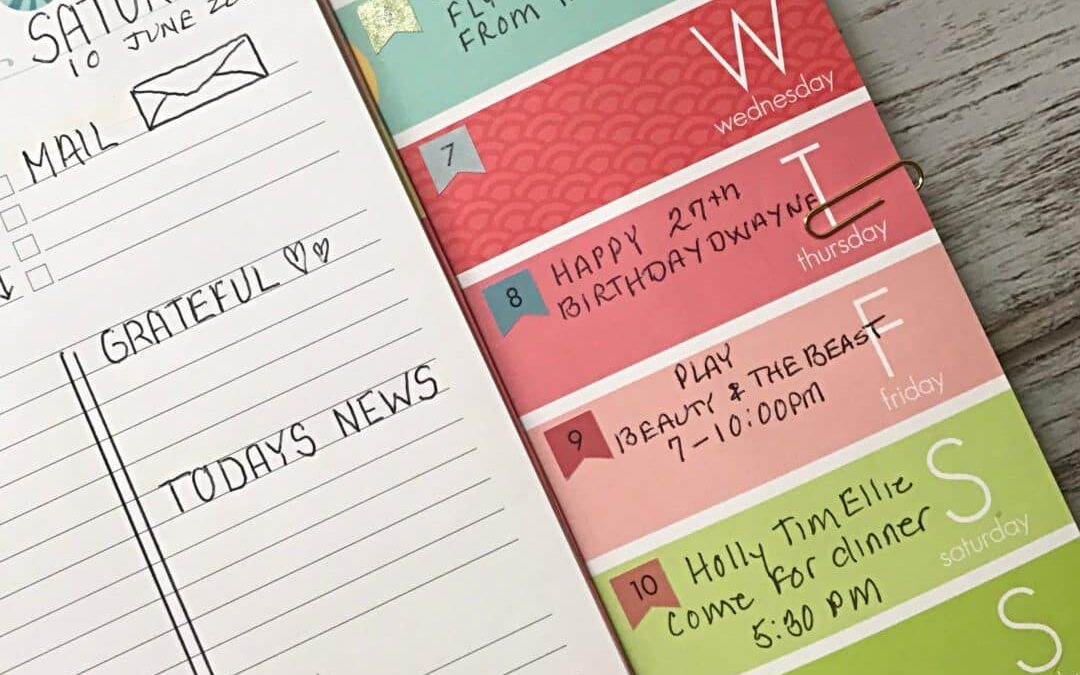 10 JUNE
MAIL
GRATEFUL
TODAYS NEWS
FROM
W
wednesday
7
T
thursday
8
HAPPY 27th
BIRTHDAY DWAYNE
F
friday
9
PLAY
BEAUTY & THE BEAST
7-10:00PM
S
saturday
10
Holly Tim Ellie
come For dinner
5:30 PM
S